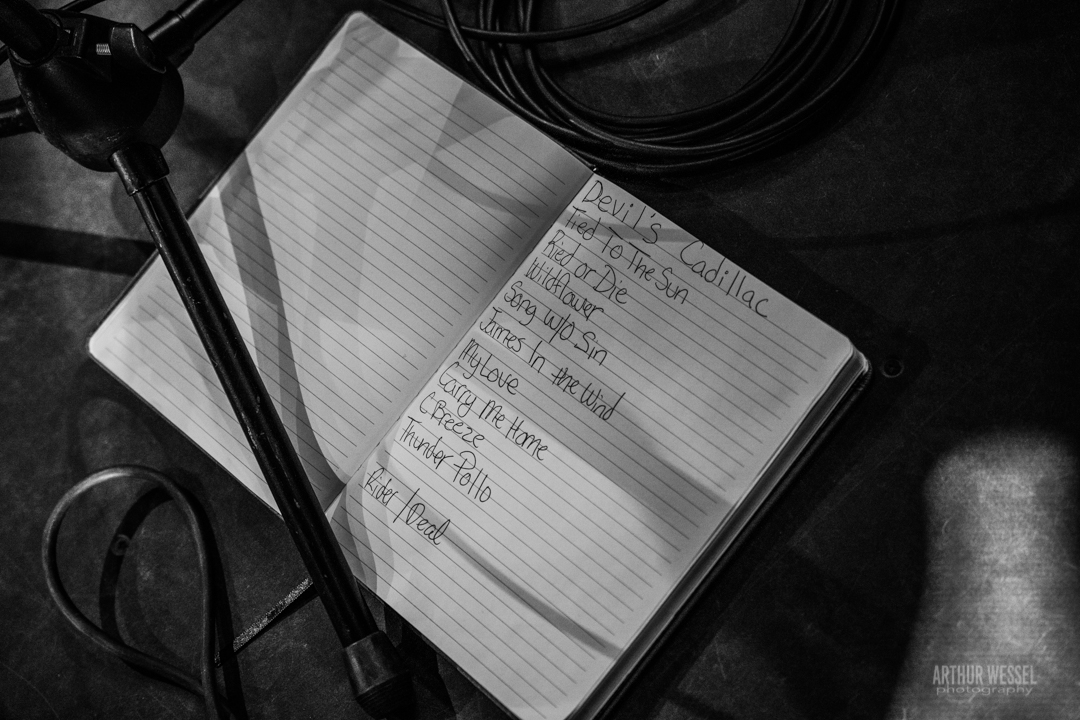 Devil's Cadillac
Tied to the Sun
Ried or Die
Wildflower
Song w/o Sin
James In the Wind
My Love
Carry Me Home
C Breeze
Thunder Pollo
Rider / Deal
ARTHUR WESSEL
photography